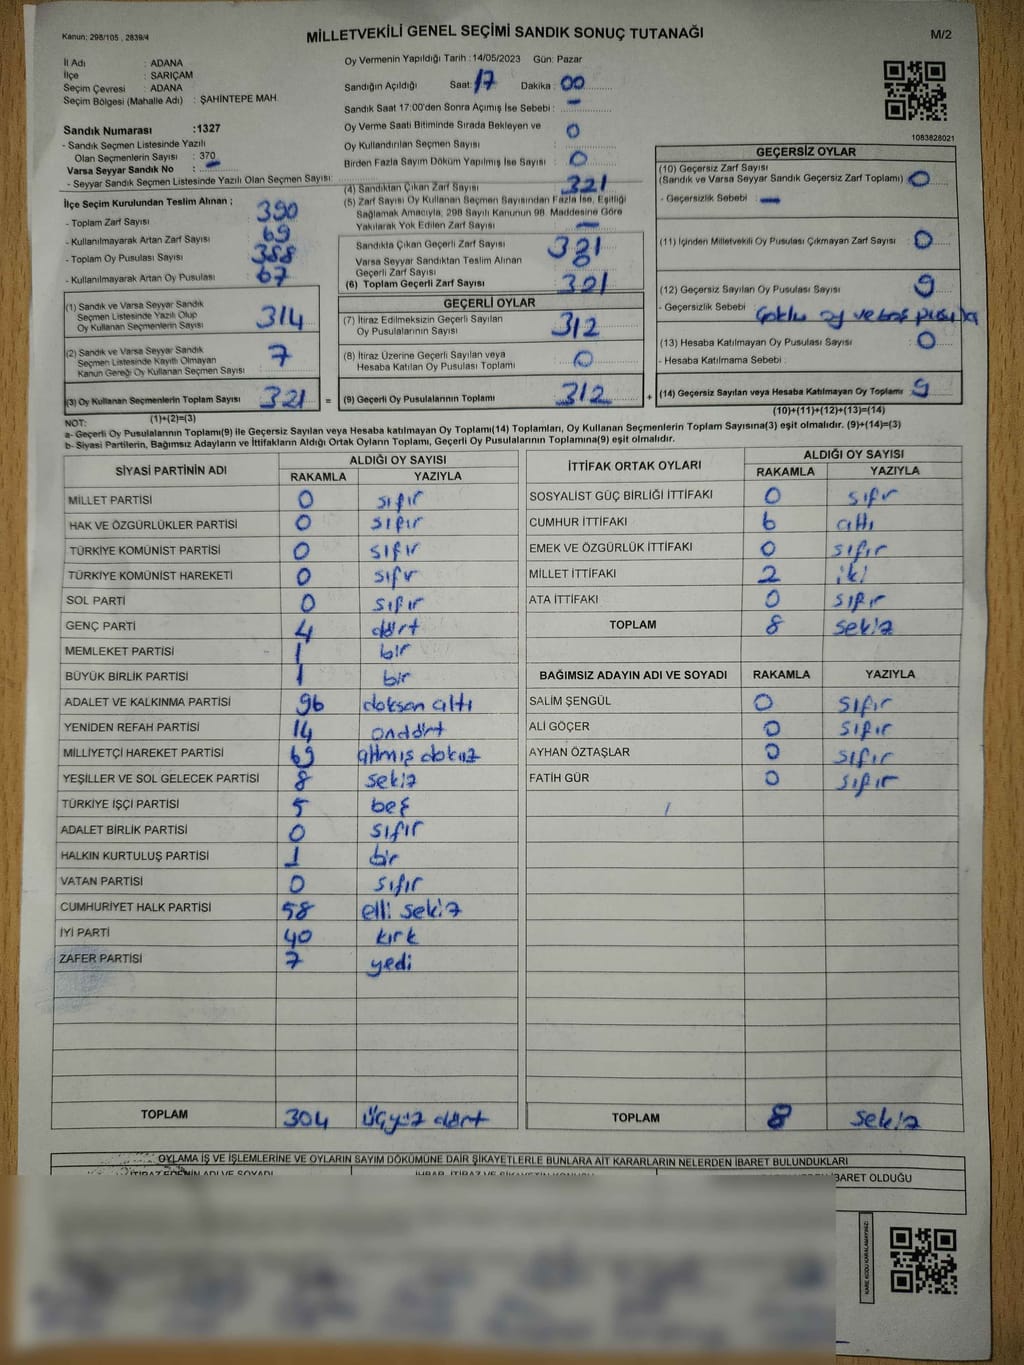 Kanun: 298/105 , 2839/4
MİLLETVEKİLİ GENEL SEÇİMİ SANDIK SONUÇ TUTANAĞI
M/2
İl Adı : ADANA
İlçe : SARIÇAM
Seçim Çevresi : ADANA
Seçim Bölgesi (Mahalle Adı) : ŞAHİNTEPE MAH.
Sandık Numarası :1327
- Sandık Seçmen Listesinde Yazılı
Olan Seçmenlerin Sayısı : 370
Varsa Seyyar Sandık No : -
- Seyyar Sandık Seçmen Listesinde Yazılı Olan Seçmen Sayısı:
Oy Vermenin Yapıldığı Tarih : 14/05/2023 Gün: Pazar
Sandığın Açıldığı Saat: 17 Dakika : 00
Sandık Saat 17:00'den Sonra Açımış İse Sebebi : -
Oy Verme Saati Bitiminde Sırada Bekleyen ve
Oy Kullandırılan Seçmen Sayısı : 0
Birden Fazla Sayım Döküm Yapılmış İse Sayısı : 0
1083828021
İlçe Seçim Kurulundan Teslim Alınan ;
- Toplam Zarf Sayısı : 390
- Kullanılmayarak Artan Zarf Sayısı : 69
- Toplam Oy Pusulası Sayısı : 388
- Kullanılmayarak Artan Oy Pusulası : 67
(1) Sandık ve Varsa Seyyar Sandık
Seçmen Listesinde Yazılı Olup
Oy Kullanan Seçmenlerin Sayısı : 314
(2) Sandık ve Varsa Seyyar Sandık
Seçmen Listesinde Kayıtlı Olmayan
Kanun Gereği Oy Kullanan Seçmen Sayısı : 7
(3) Oy Kullanan Seçmenlerin Toplam Sayısı : 321 =
(1)+(2)=(3)
(4) Sandıktan Çıkan Zarf Sayısı : 321
(5) Zarf Sayısı Oy Kullanan Seçmen Sayısından Fazla İse, Eşitliği
Sağlamak Amacıyla, 298 Sayılı Kanunun 98. Maddesine Göre
Yakılarak Yok Edilen Zarf Sayısı : -
Sandıkta Çıkan Geçerli Zarf Sayısı : 321
Varsa Seyyar Sandıktan Teslim Alınan
Geçerli Zarf Sayısı : 0
(6) Toplam Geçerli Zarf Sayısı : 321
GEÇERLİ OYLAR
(7) İtiraz Edilmeksizin Geçerli Sayılan
Oy Pusulalarının Sayısı : 312
(8) İtiraz Üzerine Geçerli Sayılan veya
Hesaba Katılan Oy Pusulası Toplamı : 0
(9) Geçerli Oy Pusulalarının Toplamı : 312 +
GEÇERSİZ OYLAR
(10) Geçersiz Zarf Sayısı
(Sandık ve Varsa Seyyar Sandık Geçersiz Zarf Toplamı) : 0
- Geçersizlik Sebebi : -
(11) İçinden Milletvekili Oy Pusulası Çıkmayan Zarf Sayısı : 0
(12) Geçersiz Sayılan Oy Pusulası Sayısı : 9
- Geçersizlik Sebebi : Çoklu oy ve boş pusula
(13) Hesaba Katılmayan Oy Pusulası Sayısı : 0
- Hesaba Katılmama Sebebi :
(14) Geçersiz Sayılan veya Hesaba Katılmayan Oy Toplamı : 9
(10)+(11)+(12)+(13)=(14)
NOT:
a- Geçerli Oy Pusulalarının Toplamı(9) ile Geçersiz Sayılan veya Hesaba katılmayan Oy Toplamı(14) Toplamları, Oy Kullanan Seçmenlerin Toplam Sayısına(3) eşit olmalıdır. (9)+(14)=(3)
b- Siyasi Partilerin, Bağımsız Adayların ve İttifakların Aldığı Ortak Oyların Toplamı, Geçerli Oy Pusulalarının Toplamına(9) eşit olmalıdır.
SİYASİ PARTİNİN ADI ALDIĞI OY SAYISI
RAKAMLA YAZIYLA
MİLLET PARTİSİ 0 sıfır
HAK VE ÖZGÜRLÜKLER PARTİSİ 0 sıfır
TÜRKİYE KOMÜNİST PARTİSİ 0 sıfır
TÜRKİYE KOMÜNİST HAREKETİ 0 sıfır
SOL PARTİ 0 sıfır
GENÇ PARTİ 4 dört
MEMLEKET PARTİSİ 1 bir
BÜYÜK BİRLİK PARTİSİ 1 bir
ADALET VE KALKINMA PARTİSİ 96 doksan altı
YENİDEN REFAH PARTİSİ 14 ondört
MİLLİYETÇİ HAREKET PARTİSİ 69 altmış dokuz
YEŞİLLER VE SOL GELECEK PARTİSİ 8 sekiz
TÜRKİYE İŞÇİ PARTİSİ 5 beş
ADALET BİRLİK PARTİSİ 0 sıfır
HALKIN KURTULUŞ PARTİSİ 1 bir
VATAN PARTİSİ 0 sıfır
CUMHURİYET HALK PARTİSİ 58 elli sekiz
İYİ PARTİ 40 kırk
ZAFER PARTİSİ 7 yedi
TOPLAM 304 üçyüz dört
İTTİFAK ORTAK OYLARI ALDIĞI OY SAYISI
RAKAMLA YAZIYLA
SOSYALİST GÜÇ BİRLİĞİ İTTİFAKI 0 sıfır
CUMHUR İTTİFAKI 6 altı
EMEK VE ÖZGÜRLÜK İTTİFAKI 0 sıfır
MİLLET İTTİFAKI 2 iki
ATA İTTİFAKI 0 sıfır
TOPLAM 8 sekiz
BAĞIMSIZ ADAYIN ADI VE SOYADI RAKAMLA YAZIYLA
SALİM ŞENGÜL 0 sıfır
ALİ GÖÇER 0 sıfır
AYHAN ÖZTAŞLAR 0 sıfır
FATİH GÜR 0 sıfır
TOPLAM 8 sekiz
OYLAMA İŞ VE İŞLEMLERİNE VE OYLARIN SAYIM DÖKÜMÜNE DAİR ŞİKAYETLERLE BUNLARA AİT KARARLARIN NELERDEN İBARET BULUNDUKLARI
İTİRAZ EDENİN ADI VE SOYADI
İBARET OLDUĞU